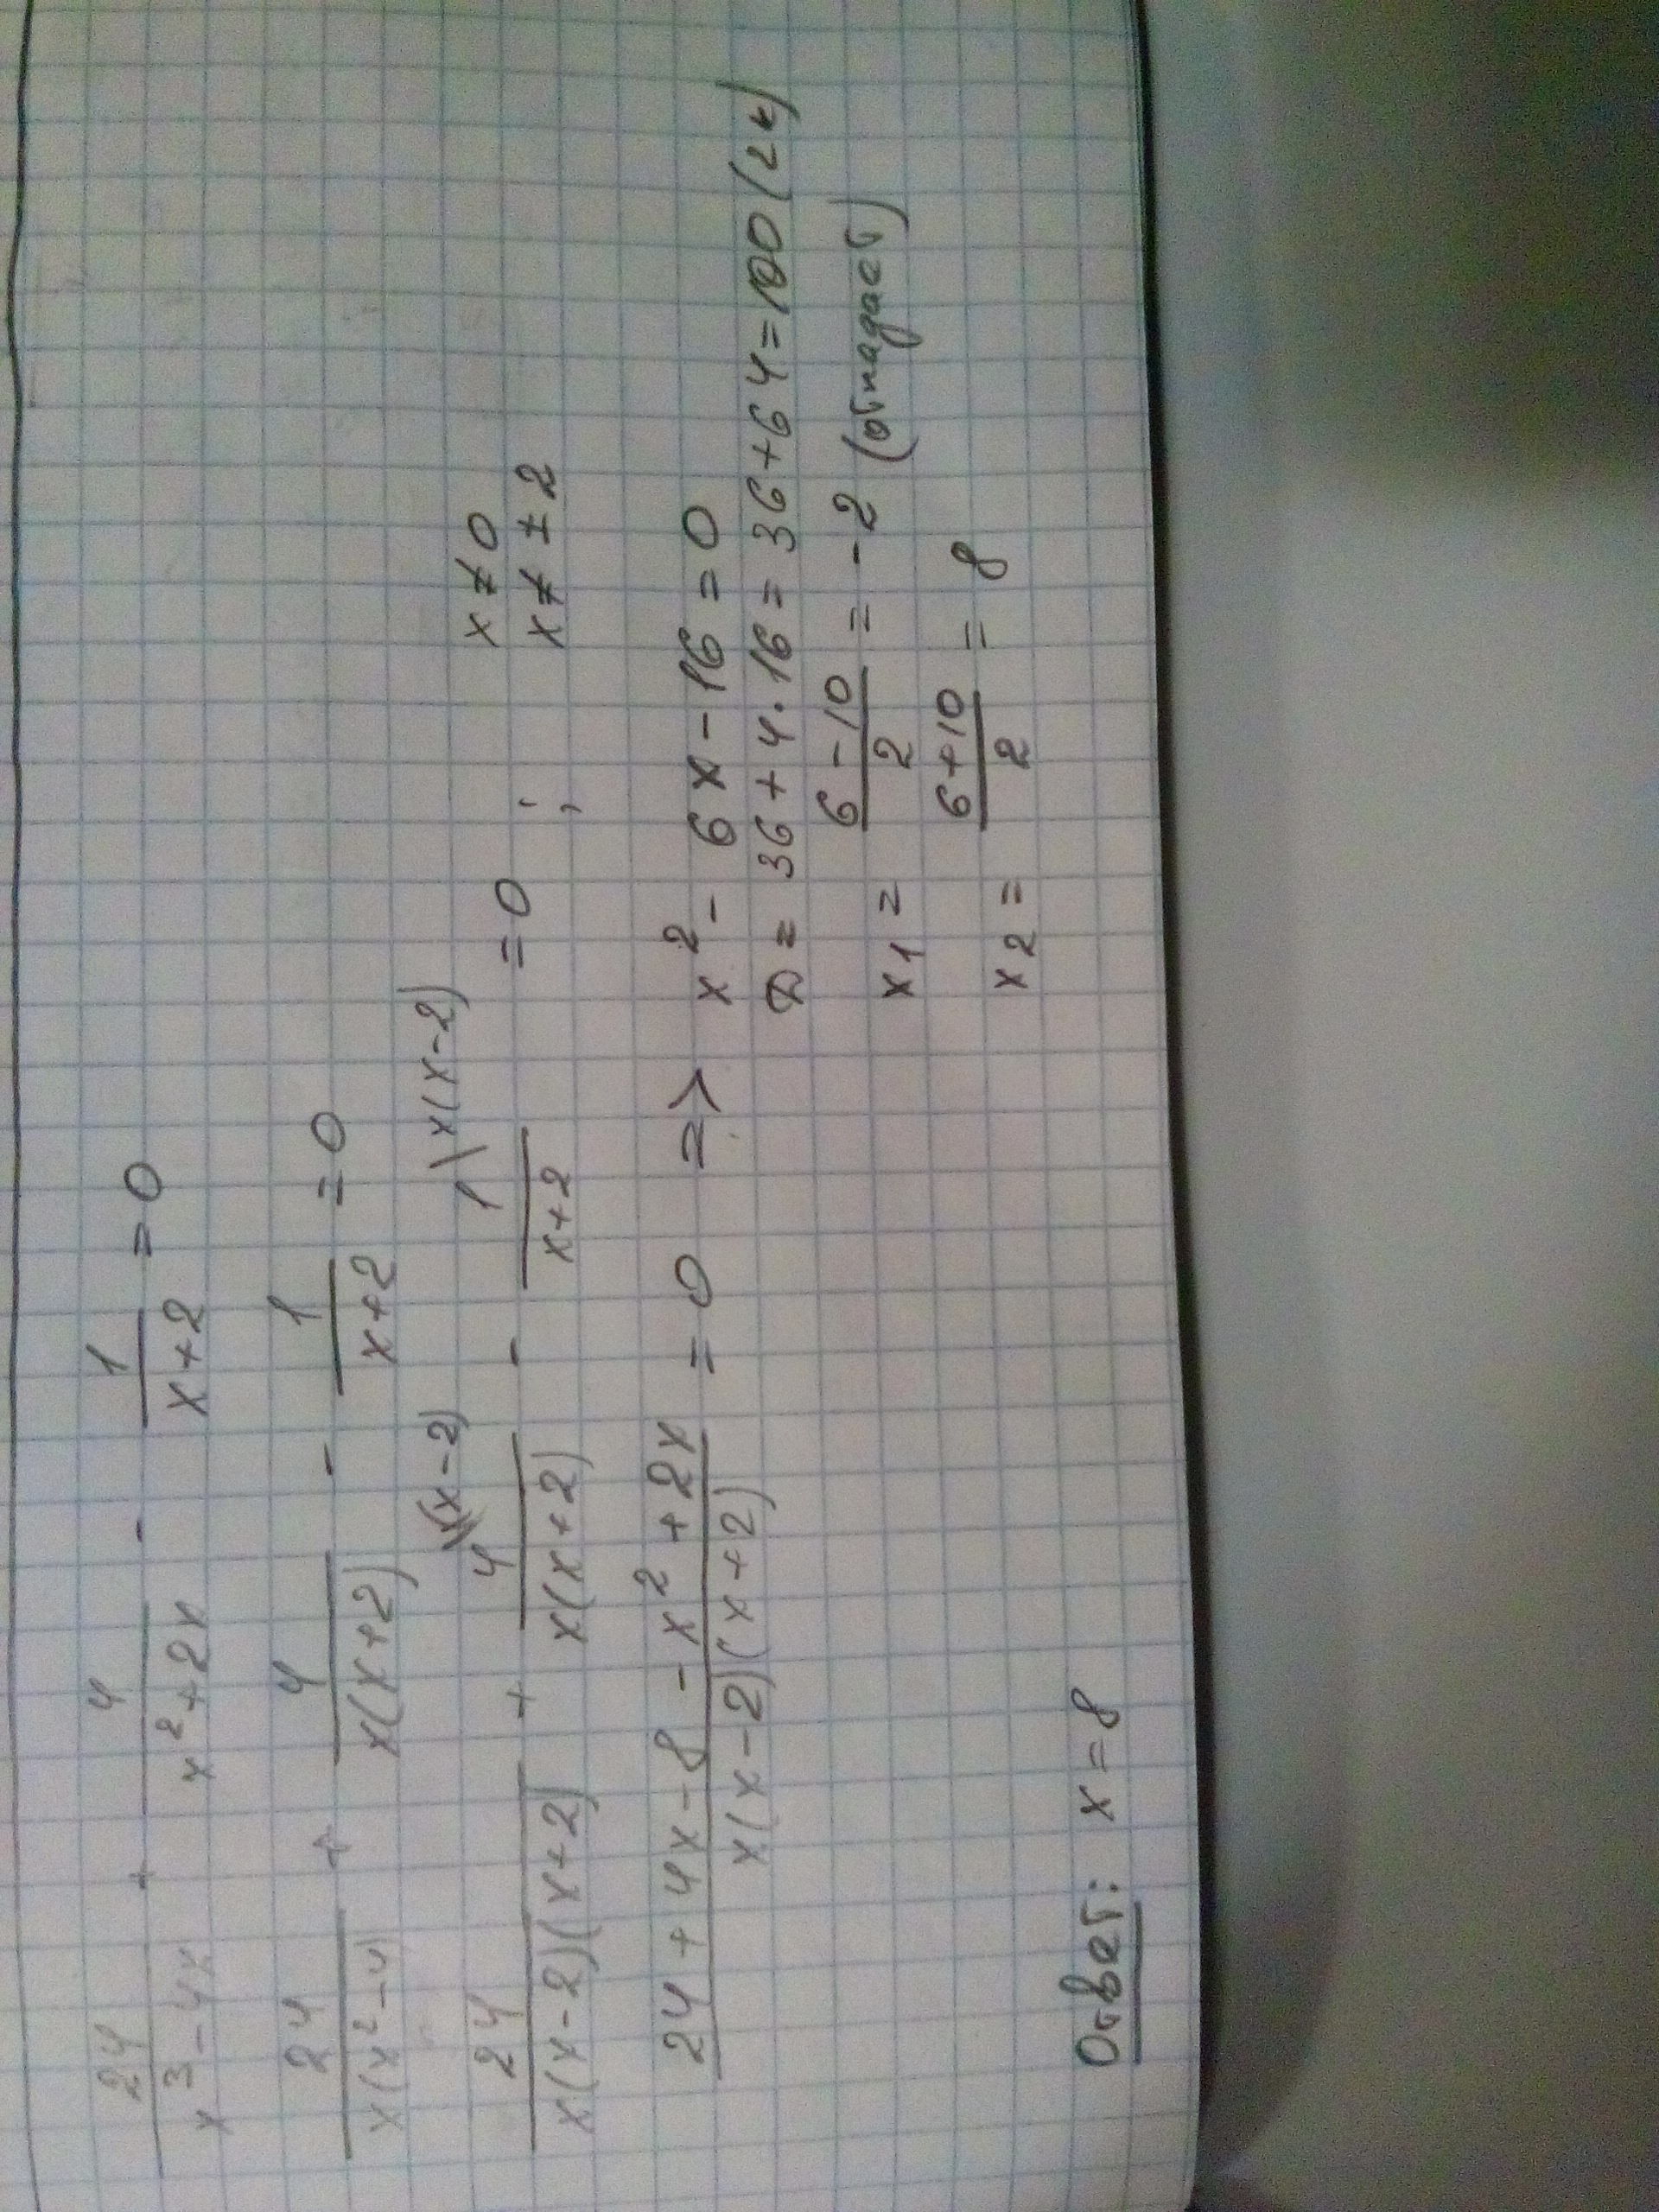 24/(x³-4x) + 4/(x²+2x) - 1/(x+2) = 0
24/(x(x²-4)) + 4/(x(x+2)) - 1/(x+2) = 0
24/(x(x-2)(x+2)) + 4\(x-2)/(x(x+2)) - 1\x(x-2)/(x+2) = 0 ; x≠0
x≠±2
(24+4x-8-x²+2x)/(x(x-2)(x+2)) = 0 => x²-6x-16=0
D=36+4·16=36+64=100 (2к)
x1 = (6-10)/2 = -2 (отпадает)
x2 = (6+10)/2 = 8
Ответ: x=8